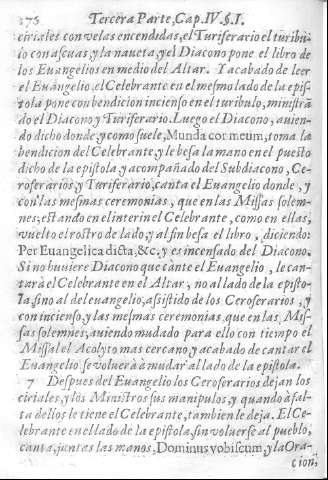 175 Tercera Parte, Cap. IV. §. I.
ciriales con velas encendidas, el Turiferario el turibu-
io con ascuas, y la naueta, y el Diacono pone el libro de
los Euangelios en medio del Altar. Y acabado de leer
el Euangelio, el Celebrante en el mesmo lado de la epis-
tola pone con bendicion incienso en el turibulo, ministrã
do el Diacono y Turiferario. Luego el Diacono, auien-
do dicho donde, y como suele, Munda cor meum, toma la
bendicion del Celebrante, y le besa la mano en el puesto
dicho de la epistola, y acompañado del Subdiacono, Ce-
roferarios, y Turiferario, canta el Euangelio donde, y
con las mesmas ceremonias, que en las Missas solem-
nes, estando en el interin el Celebrante, como en ellas,
vuelto el rostro de lado, y al fin besa el libro, diciendo:
Per Euangelica dicta, &c. y es incensado del Diacono.
Si no huuiere Diacono que cante el Euangelio, le can-
tarà el Celebrante en el Altar, no al lado de la episto-
la, sino al del euangelio, assistido de los Ceroferarios, y
con incienso, y las mesmas ceremonias que en las Mis-
sas solemnes, auiendo mudado para ello con tiempo el
Missal el Acolyto mas cercano, y acabado de cantar el
Euangelio se voluerà à mudar al lado de la epistola.
7 Despues del Euangelio los Ceroferarios dejan los
ciriales, y los Ministros sus manipulos, y quando à fal-
ta de llos le tiene el Celebrante, tambien le deja. El Ce-
lebrante en el lado de la epistola, sin voluerse al pueblo,
canta, juntas las manos, Dominus vobiscum, y la Ora-
cion,